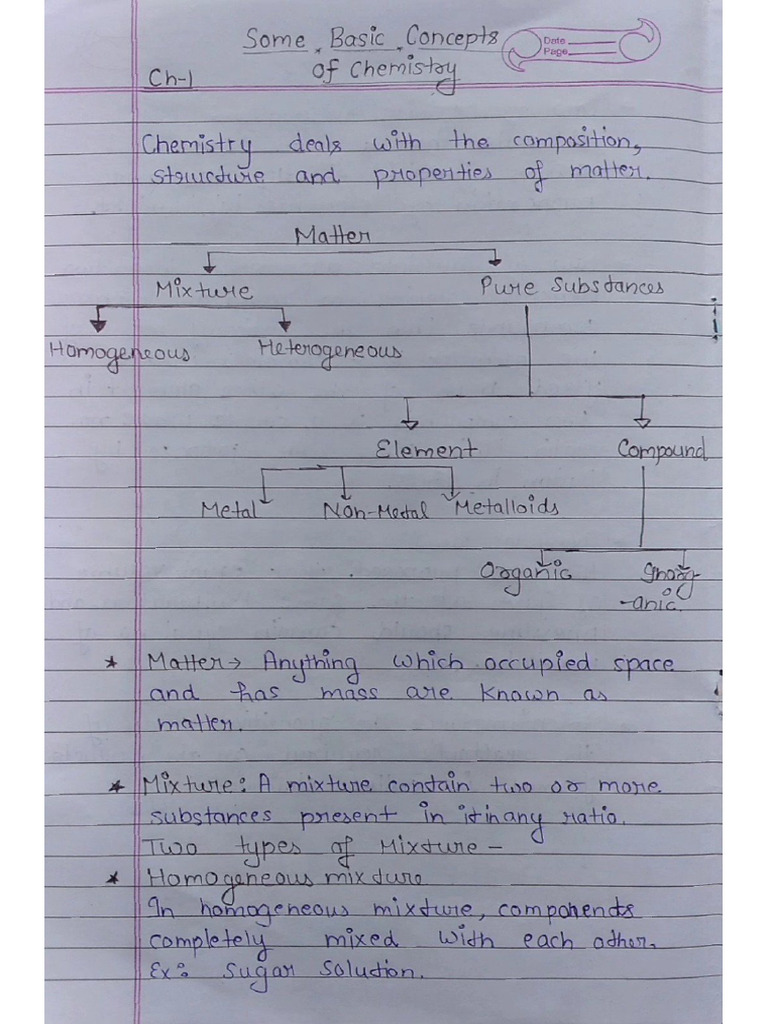 Some Basic Concepts
of Chemistry
Date
Page
Ch-1
Chemistry deals with the composition,
structure and properties of matter.
Matter
Mixture Pure Substances
Homogeneous Heterogeneous
Element Compound
Metal Non-Metal Metalloids
Organic Inorg
-anic
* Matter → Anything which occupied space
and has mass are known as
matter.
* Mixture: A mixture contain two or more
substances present in it in any ratio.
Two types of Mixture -
* Homogeneous mixture
In homogeneous mixture, components
completely mixed with each other.
Ex: Sugar solution.